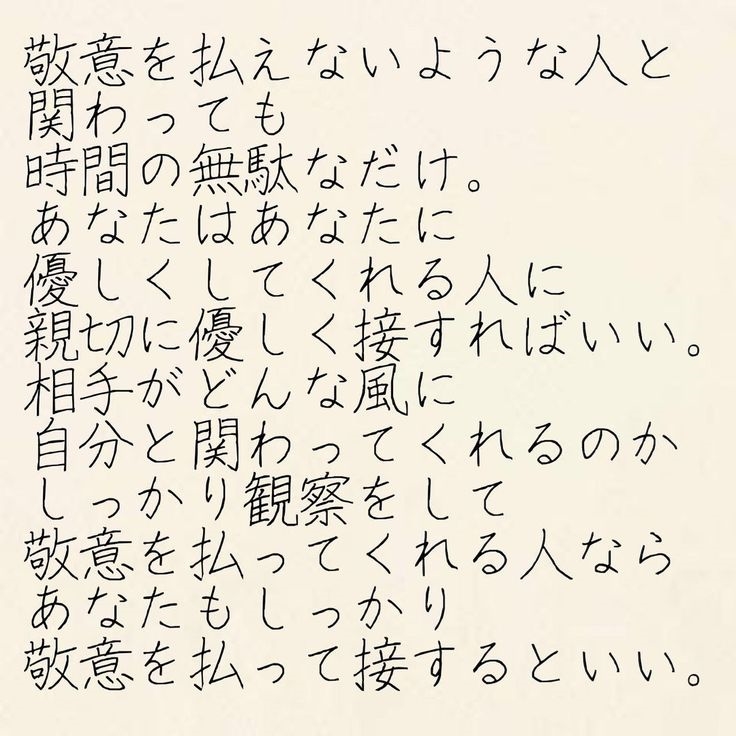 敬意を払えないような人と
関わっても
時間の無駄なだけ。
あなたはあなたに
優しくしてくれる人に
親切に優しく接すればいい。
相手がどんな風に
自分と関わってくれるのか
しっかり観察をして
敬意を払ってくれる人なら
あなたもしっかり
敬意を払って接するといい。